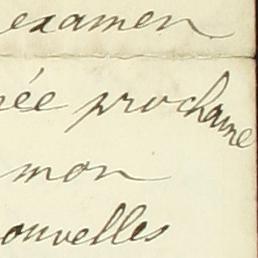 examen
ée prochaine
mon
ouvelles